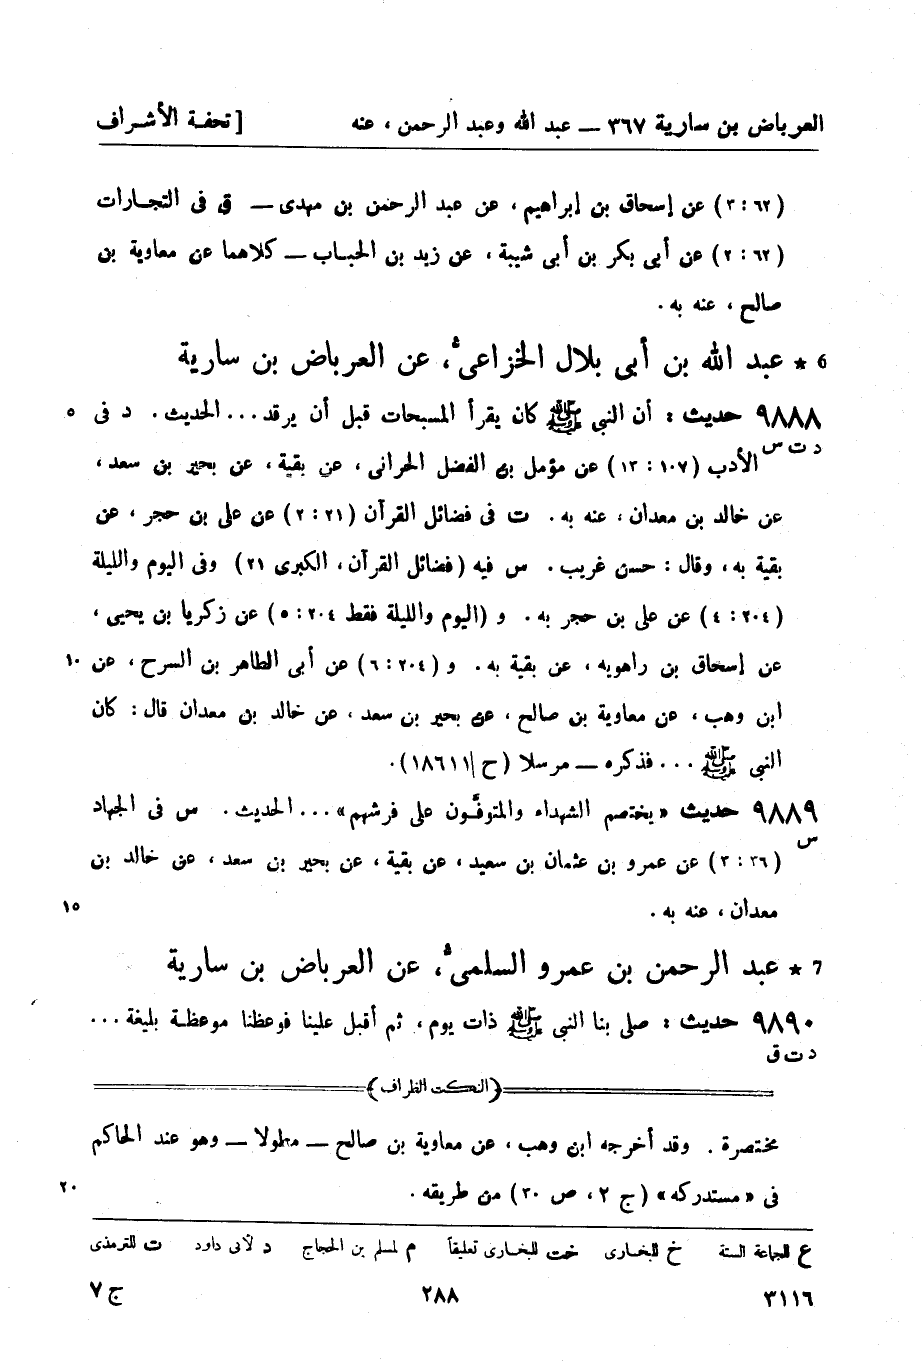 العرباض بن سارية ٣٦٧ — عبد الله وعبد الرحمن ، عنه [ تحفة الأشراف
(٣ : ٦٢) عن إسحاق بن إبراهيم ، عن عبد الرحمن بن مهدى — ق فى التجارات
(٢ : ٦٢) عن أبى بكر بن أبى شيبة ، عن زيد بن الحباب — كلاهما عن معاوية بن
صالح ، عنه به .
6 * عبد الله بن أبى بلال الخزاعى، عن العرباض بن سارية
٩٨٨٨ حديث : أن النبى ﷺ كان يقرأ المسبحات قبل أن يرقد ... الحديث . د فى ٥
د ت س
الأدب (١٠٧ : ١٣) عن مؤمل بن الفضل الحرانى ، عن بقية ، عن بحير بن سعد ،
عن خالد بن معدان ، عنه به . ت فى فضائل القرآن (٢١ : ٢) عن على بن حجر ، عن
بقية به ، وقال : حسن غريب . س فيه (فضائل القرآن ، الكبرى ٢١) وفى اليوم والليلة
(٢٠٤ : ٤) عن على بن حجر به . و (اليوم والليلة فقط ٢٠٤ : ٥) عن زكريا بن يحيى ،
عن إسحاق بن راهويه ، عن بقية به . و (٢٠٤ : ٦) عن أبى الطاهر بن السرح ، عن ١٠
ابن وهب ، عن معاوية بن صالح ، عن بحير بن سعد ، عن خالد بن معدان قال : كان
النبى ﷺ ... فذكره — مرسلا (ح ١٨٦١١) .
٩٨٨٩ حديث « يختصم الشهداء والمتوفَّون على فرشهم» ... الحديث . س فى الجهاد
س
(٣٦ : ٣) عن عمرو بن عثمان بن سعيد ، عن بقية ، عن بحير بن سعد ، عن خالد بن
معدان ، عنه به . ١٥
7 * عبد الرحمن بن عمرو السلمى، عن العرباض بن سارية
٩٨٩٠ حديث : صلى بنا النبى ﷺ ذات يوم ، ثم أقبل علينا فوعظنا موعظة بليغة ...
د ت ق
(النكت الظراف)
مختصرة . وقد أخرجه ابن وهب ، عن معاوية بن صالح — مطولا — وهو عند الحاكم
فى « مستدركه » (ج ٢ ، ص ٣٠) من طريقه . ٢٠
ع للجماعة الستة خ للبخارى خت للبخارى تعليقاً م لمسلم بن الحجاج د لأبى داود ت للترمذى
٣١١٦ ٢٨٨ ج ٧